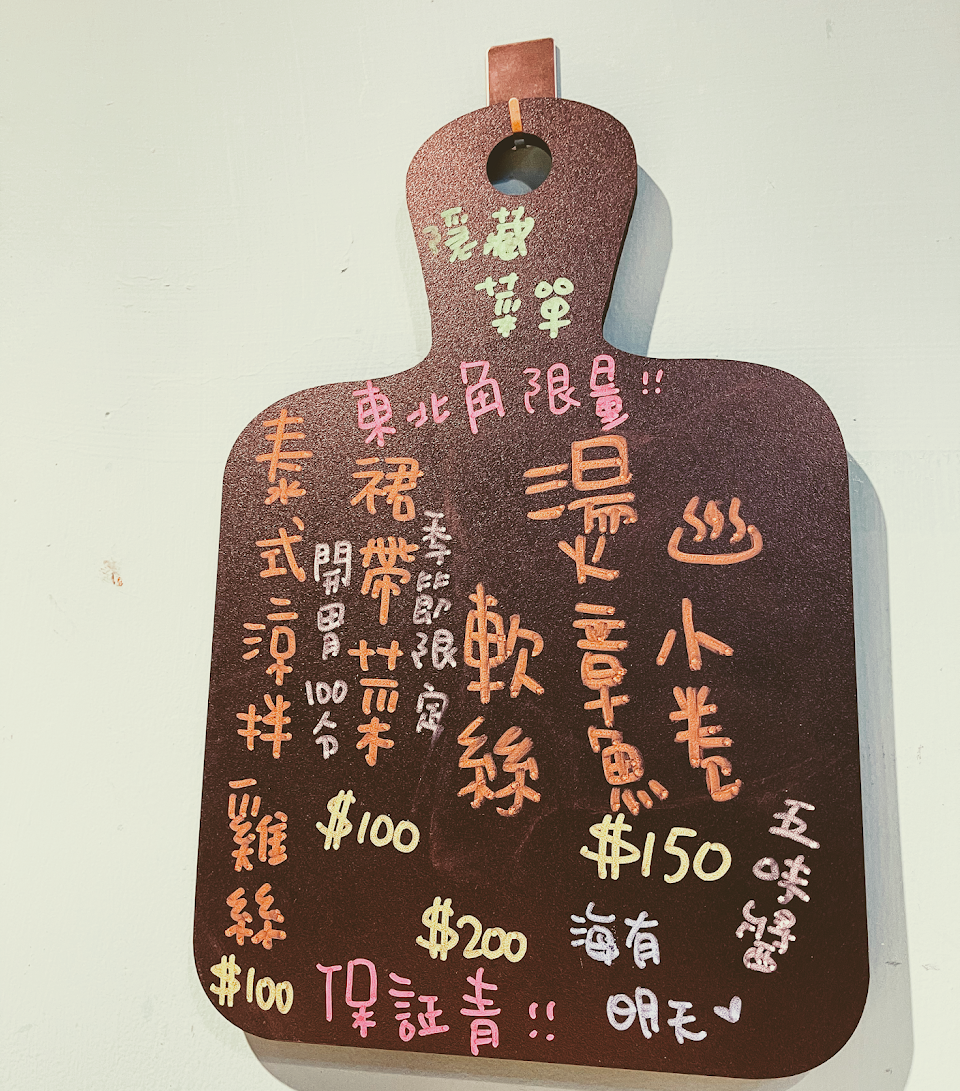 隱藏
菜單
東北角限量!!
♨小卷
燙章魚
$150
五味醬
軟絲
$200
季節限定
裙帶菜
$100
開胃100分
泰式涼拌雞絲
$100
保証青!!
海有
明天